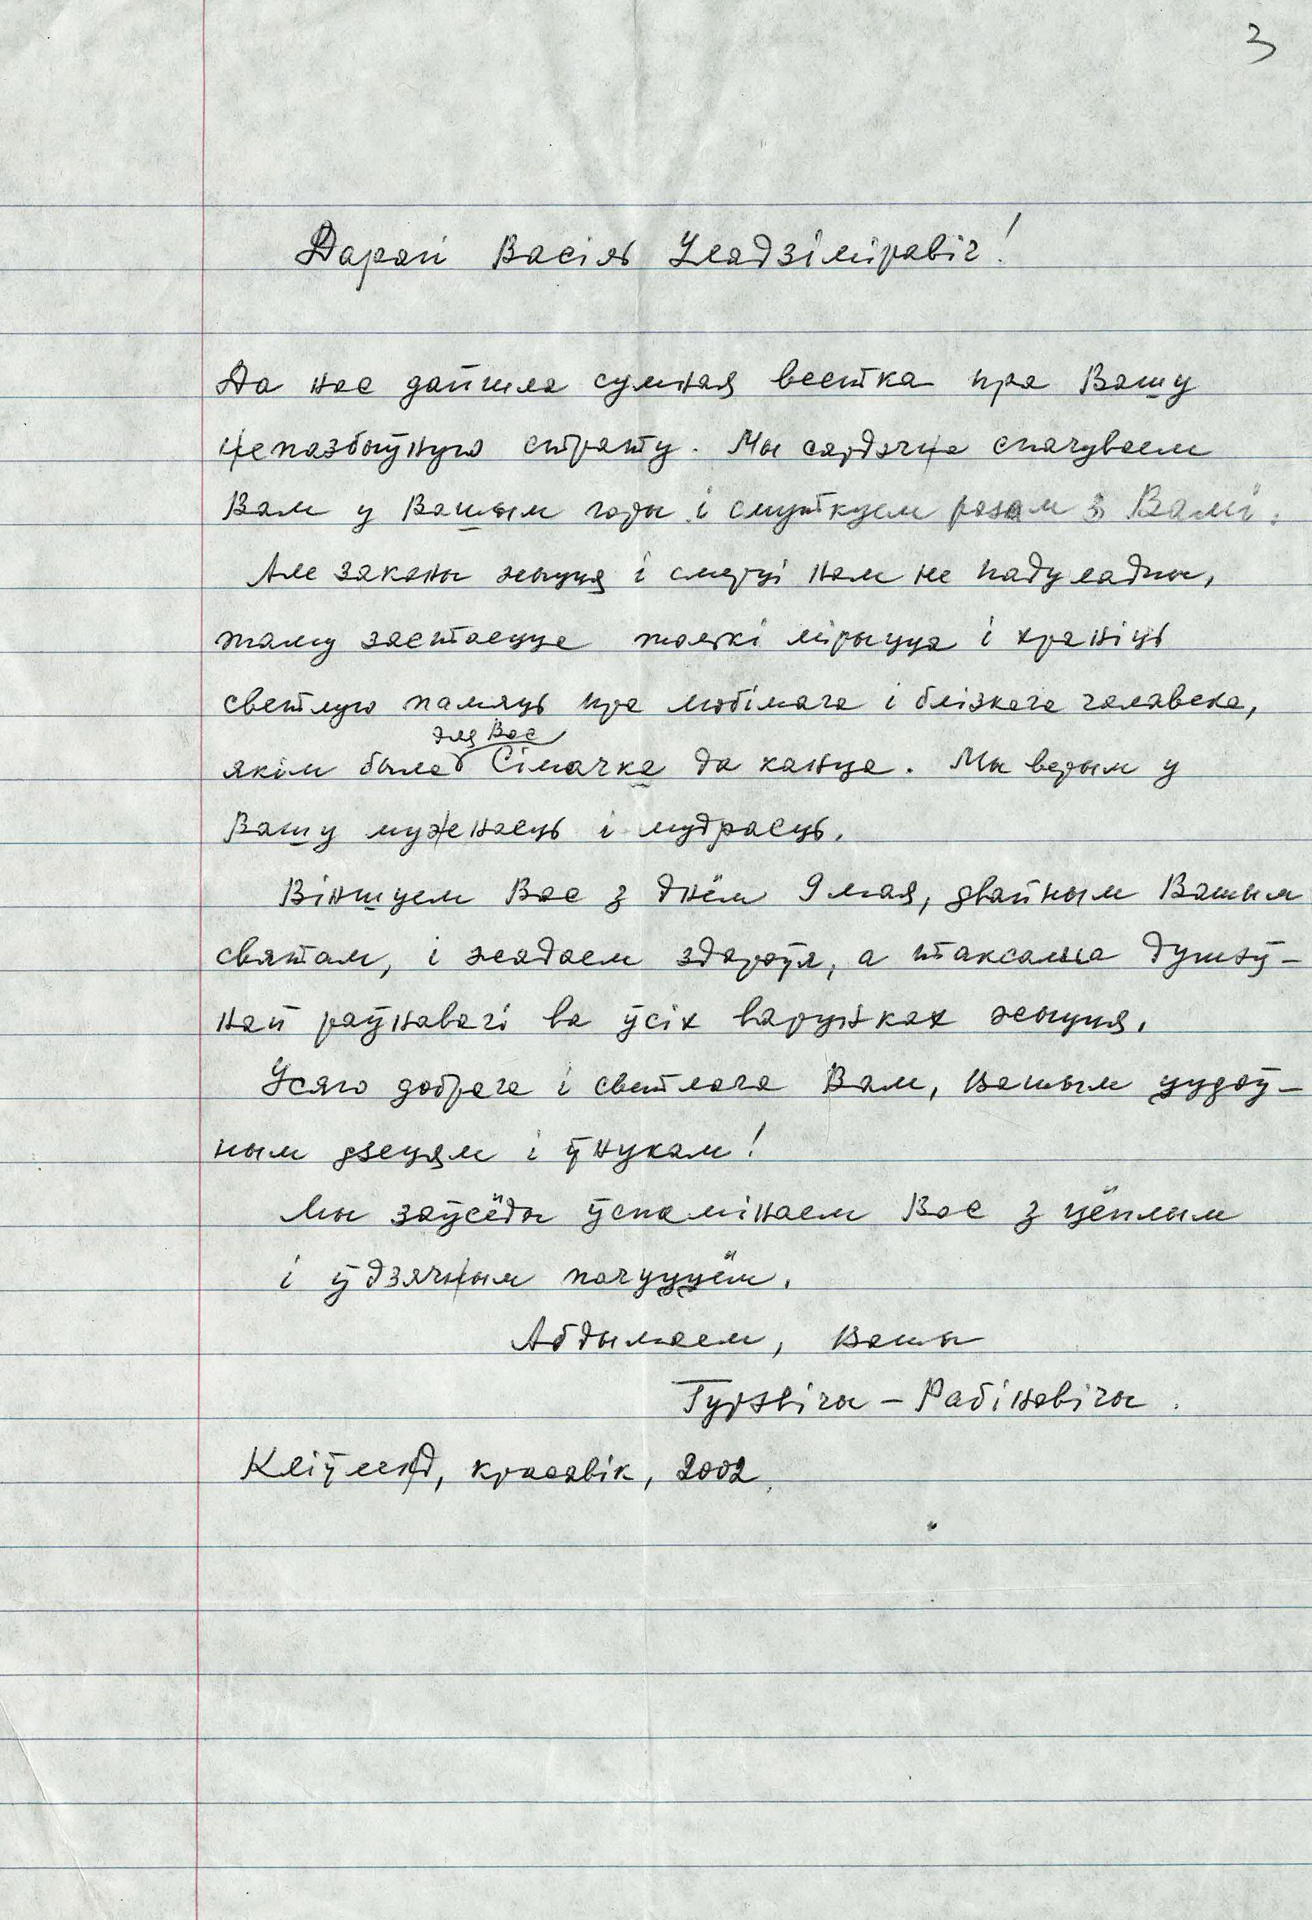 3
Дарагi Васіль Уладзіміравіч!
Да нас дайшла сумная вестка пра Вашу
непазбыўную страту. Мы сардэчна спачуваем
Вам у Вашым горы і смуткуем разам з Вамі.
Але законы жыцця і смерці нам не падуладны,
таму застаецца толькі мірыцца і храніць
светлую памяць пра любімага і блізкага чалавека,
для Вас
якім была Сімачка да канца. Мы верым у
Вашу мужнасць і мудрасць.
Віншуем Вас з днём 9 мая, двайным Вашым
святам, і жадаем здароўя, а таксама душэў-
най раўнавагі ва ўсіх варунках жыцця.
Усяго добрага і светлага Вам, Вашым цудоў-
ным дзецям і ўнукам!
Мы заўсёды ўспамінаем Вас з цёплым
і ўдзячным пачуццём.
Абдымаем, Вашы
Гурэвічы – Рабіновічы.
Кліўленд, красавік, 2002.